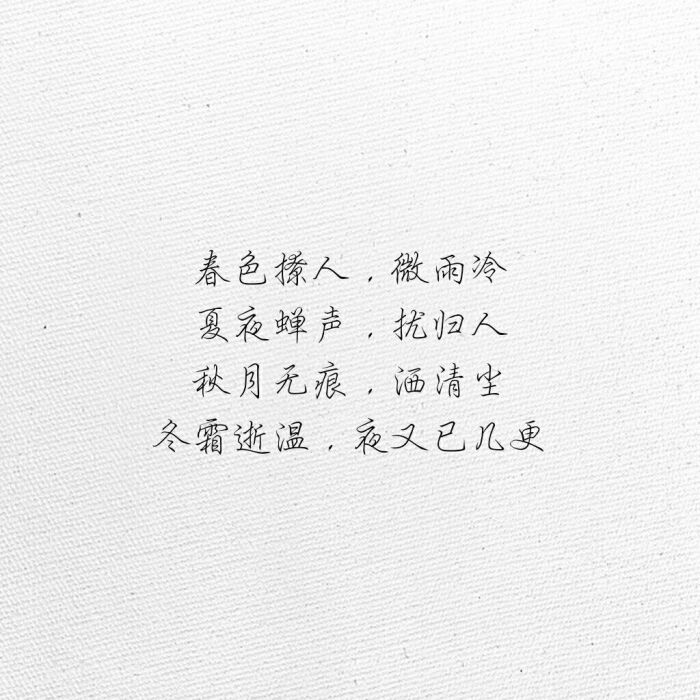 春色撩人，微雨冷
夏夜蝉声，扰归人
秋月无痕，洒清尘
冬霜逝温，夜又已几更